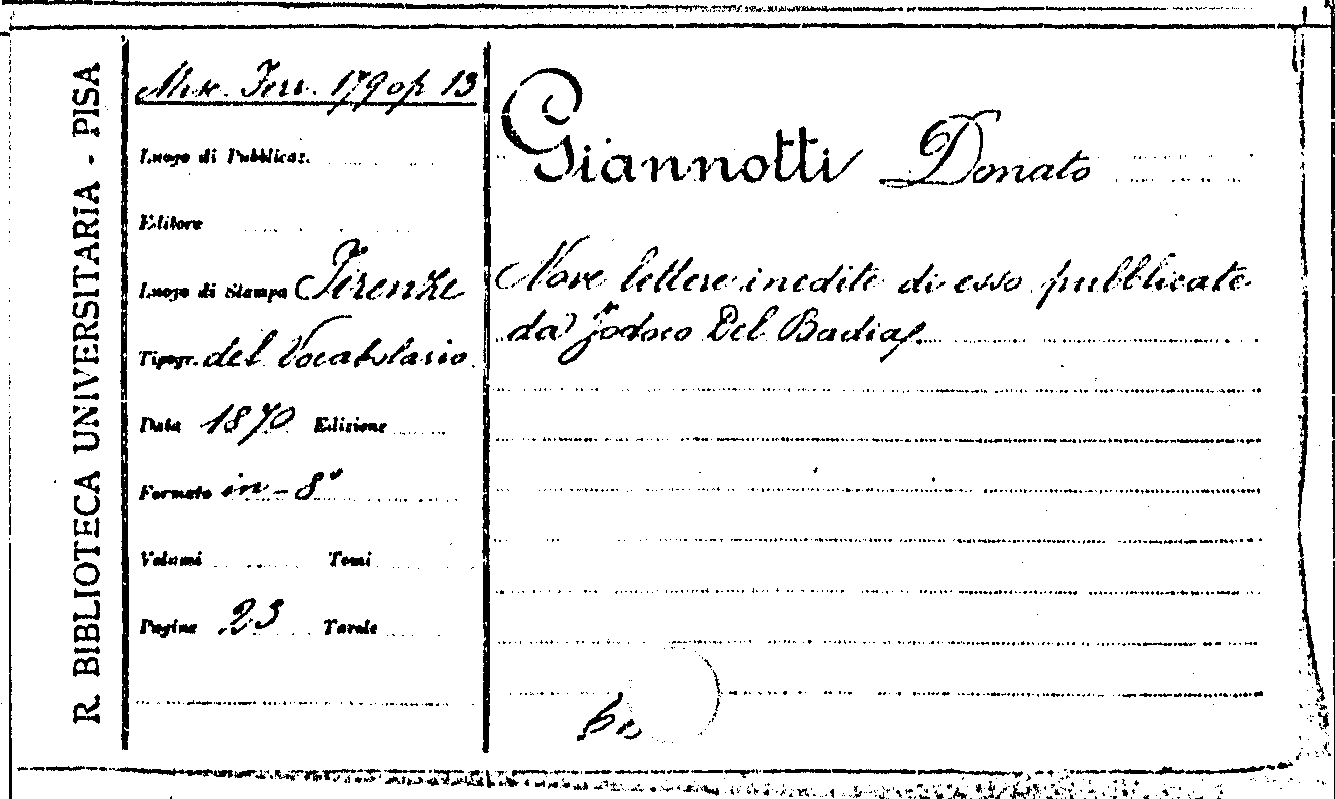 R. BIBLIOTECA UNIVERSITARIA - PISA
Misc. Ferr. 179 op 13
Luogo di Pubblicaz.
Editore
Luogo di Stampa Firenze
Tipogr. del Vocabolario
Data 1870 Edizione
Formato in-8°
Volumi Tomi
Pagine 23 Tavole
Giannotti Donato
Nove lettere inedite di esso pubblicate
da Jodoco Del Badia